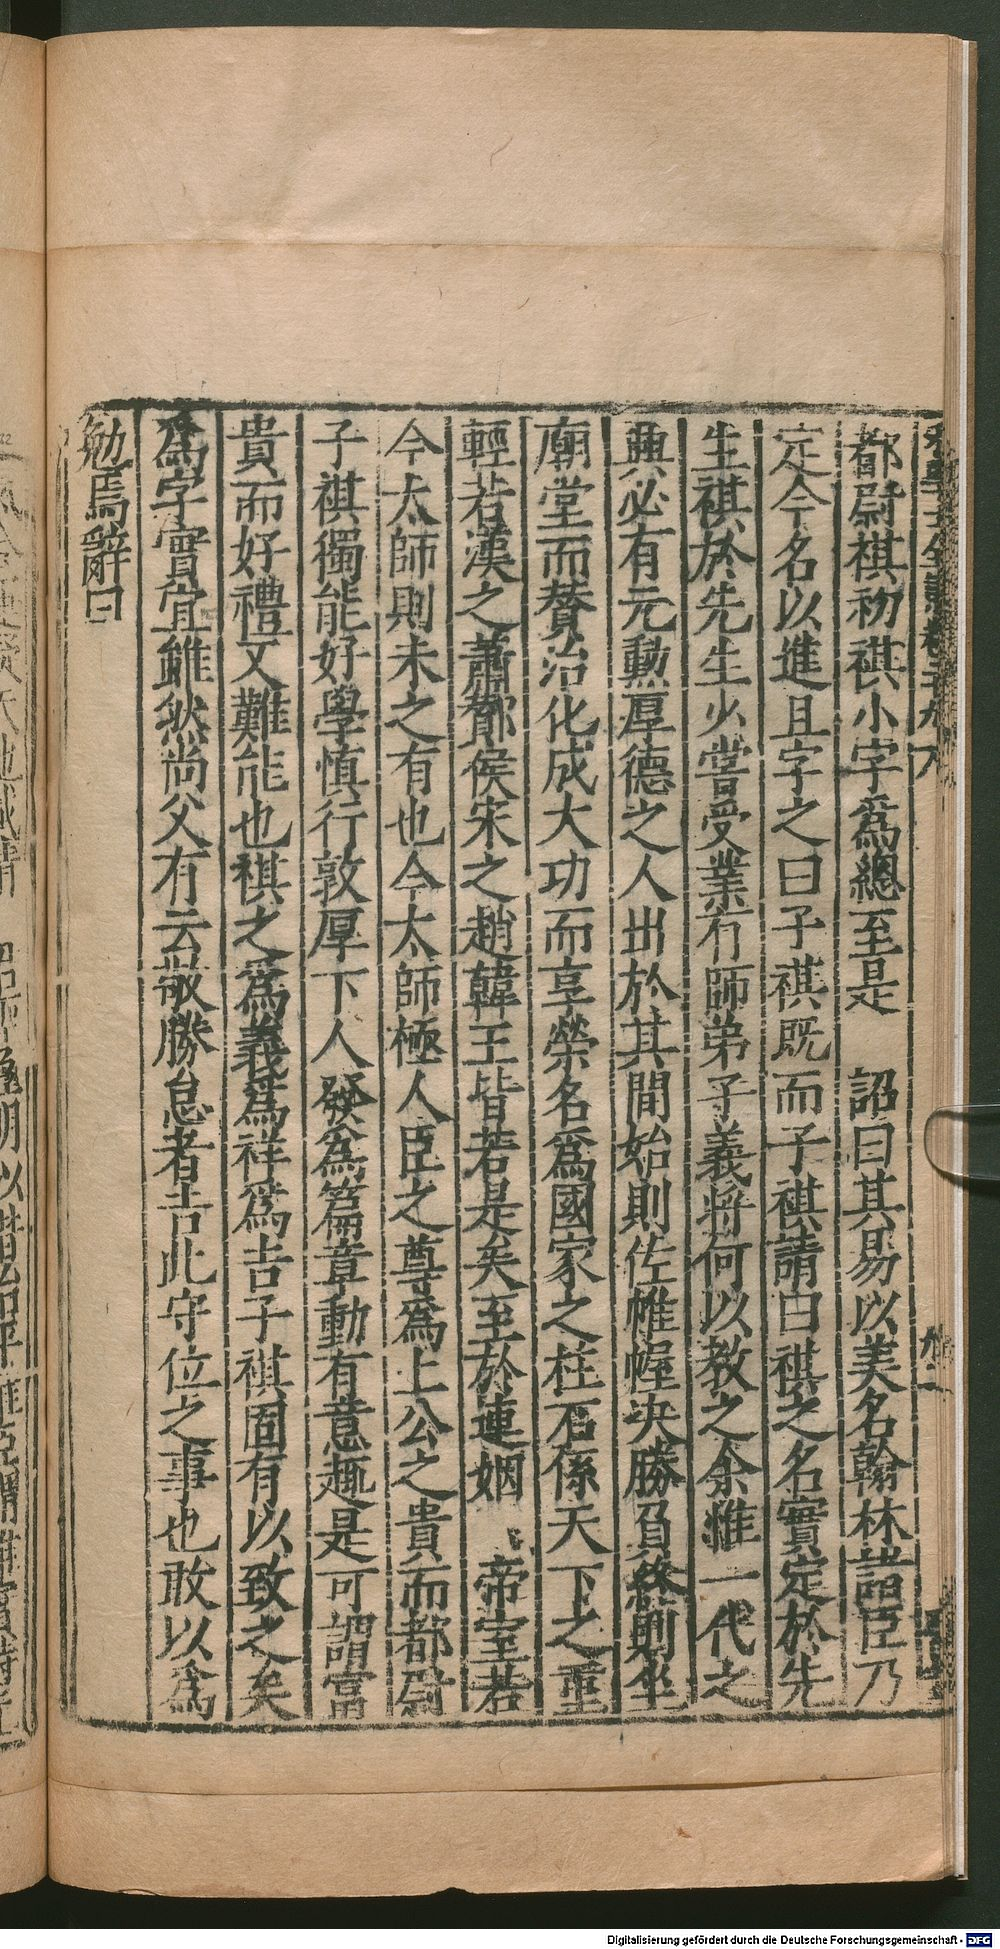 都尉祺初祺小字爲總至是　詔曰其易以美名翰林諸臣乃
定今名以進且字之曰子祺既而子祺請曰祺之名實定於先
生祺於先生少嘗受業有師弟子義將何以教之余惟一代之
興必有元勳厚德之人出於其間始則佐帷幄決勝負終則坐
廟堂而贊治化成大功而享榮名爲國家之柱石係天下之重
輕若漢之蕭酇侯宋之趙韓王皆若是矣至於連姻　帝室若
今太師則未之有也今太師極人臣之尊爲上公之貴而都尉
子祺獨能好學慎行敦厚下人發爲篇章動有意趣是可謂富
貴而好禮又難能也祺之爲義爲祥爲吉子祺固有以致之矣
爲字實宜雖然尚父有云敬勝怠者吉此守位之事也敢以爲
勉焉辭曰
Digitalisierung gefördert durch die Deutsche Forschungsgemeinschaft - DFG